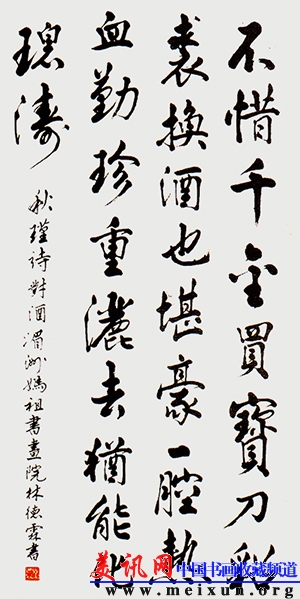 不惜千金買寶刀貂
裘換酒也堪豪一腔熱
血勤珍重灑去猶能化
碧濤
秋瑾詩對酒湄洲媽祖書畫院林德霖書
美讯网 中国书画收藏频道
www.meixun.org